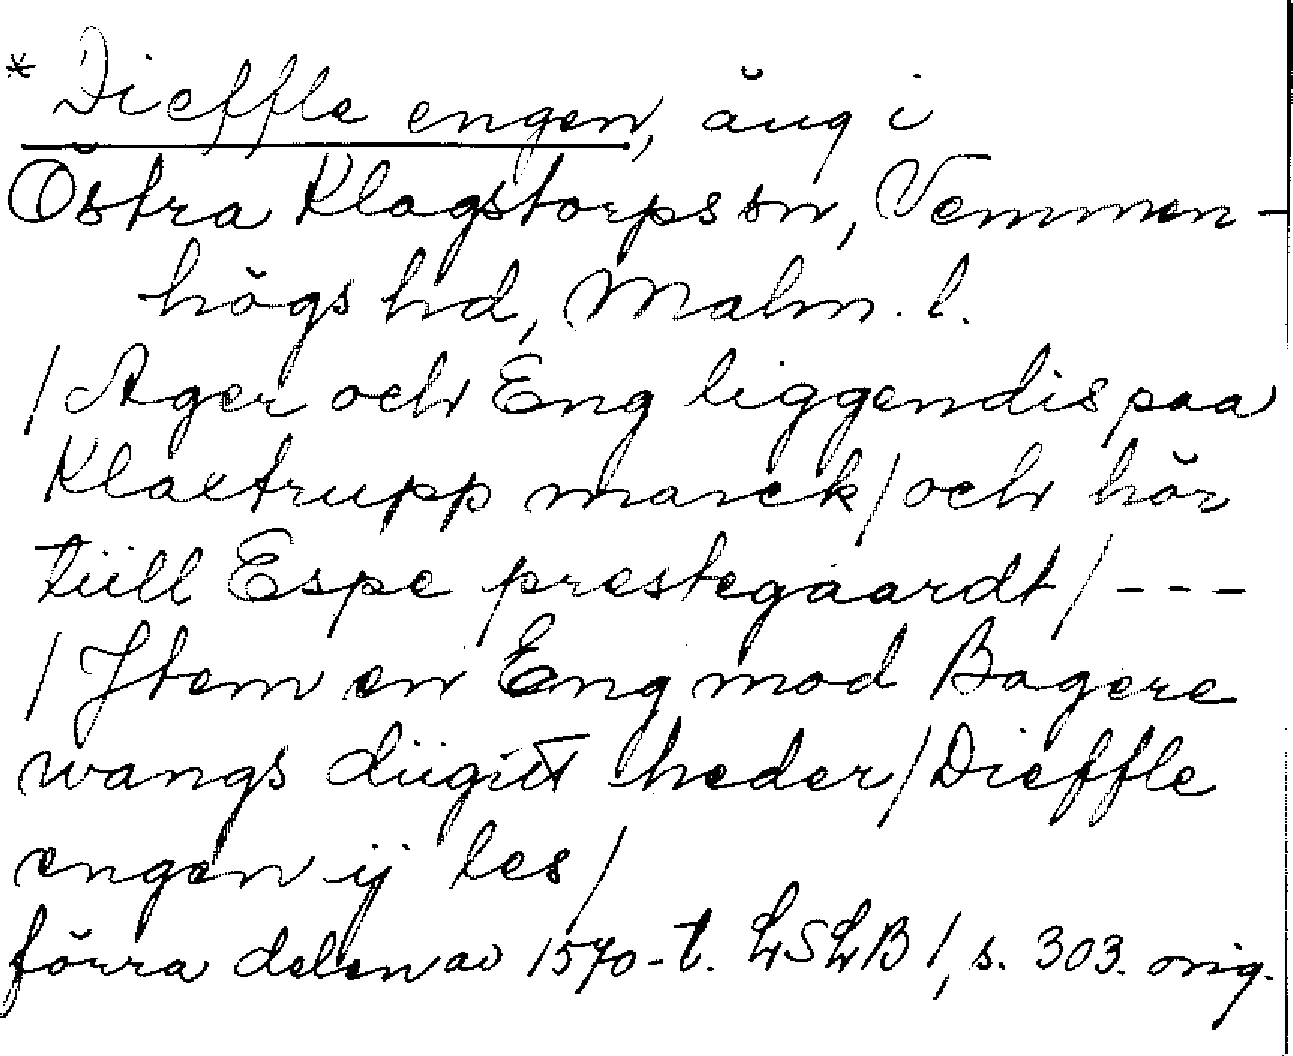 * Dieffle engen, äng i
Östra Klagstorps sn, Vemmen-
högs hd, Malm. l.
/Ager och Eng liggendis paa
Klaxtrupp marck/och hör
tüll Espe prestegaardt/---
/Jtem en Eng mod Bagere
wangs dügitt heder/Dieffle
engen ij les/
förra delen av 1570-t. LSLB 1, s. 303. orig.